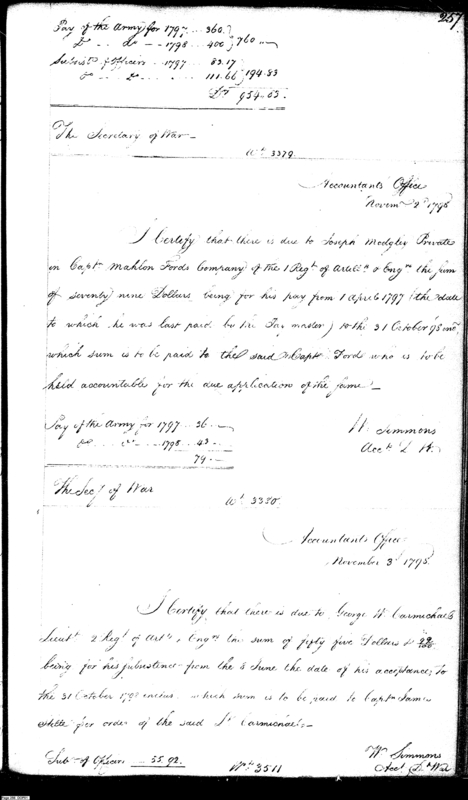 257
Pay of the Army for 1797 .. 360.
Do .. do — 1798 .. 400 } 760 ..
Subsistce of Officers .. 1797 .. 83.17
111.66 } 194.83
Drs 954.83
The Secretary of War
Wt 3379
Accountants Office
Novemr 2d 1798
I Certify that there is due to Joseph Private
in Capt Mahlon Fords Company of the 1 Regt of Artills & Engrs the sum
of seventy nine Dollars being for his pay from 1 April 1797 (the date
to which he was last paid by the Pay master) to the 31 October 98
which sum is to be paid to the said Capt Ford who is to be
held accountable for the due application of the same —
Pay of the Army for 1797 .. 36 ..
do .. do — 1798 .. 43 ..
79 —
W Simmons
Acct D W.
The Secy of War
Wt 3380
Accountants Office
November 3d 1798
I Certify that there is due to George W. Carmichael
Lieut 2 Regt of Arts & Engrs the sum of fifty five Dollars & 92/100
being for his subsistence from the 5 June the date of his acceptance to
the 31 October 1798 which sum is to be paid to Capt James
per order of the said Lt Carmichael —
Sub of Officers 55.92.
Wt 3511
W Simmons
Acct Dt War